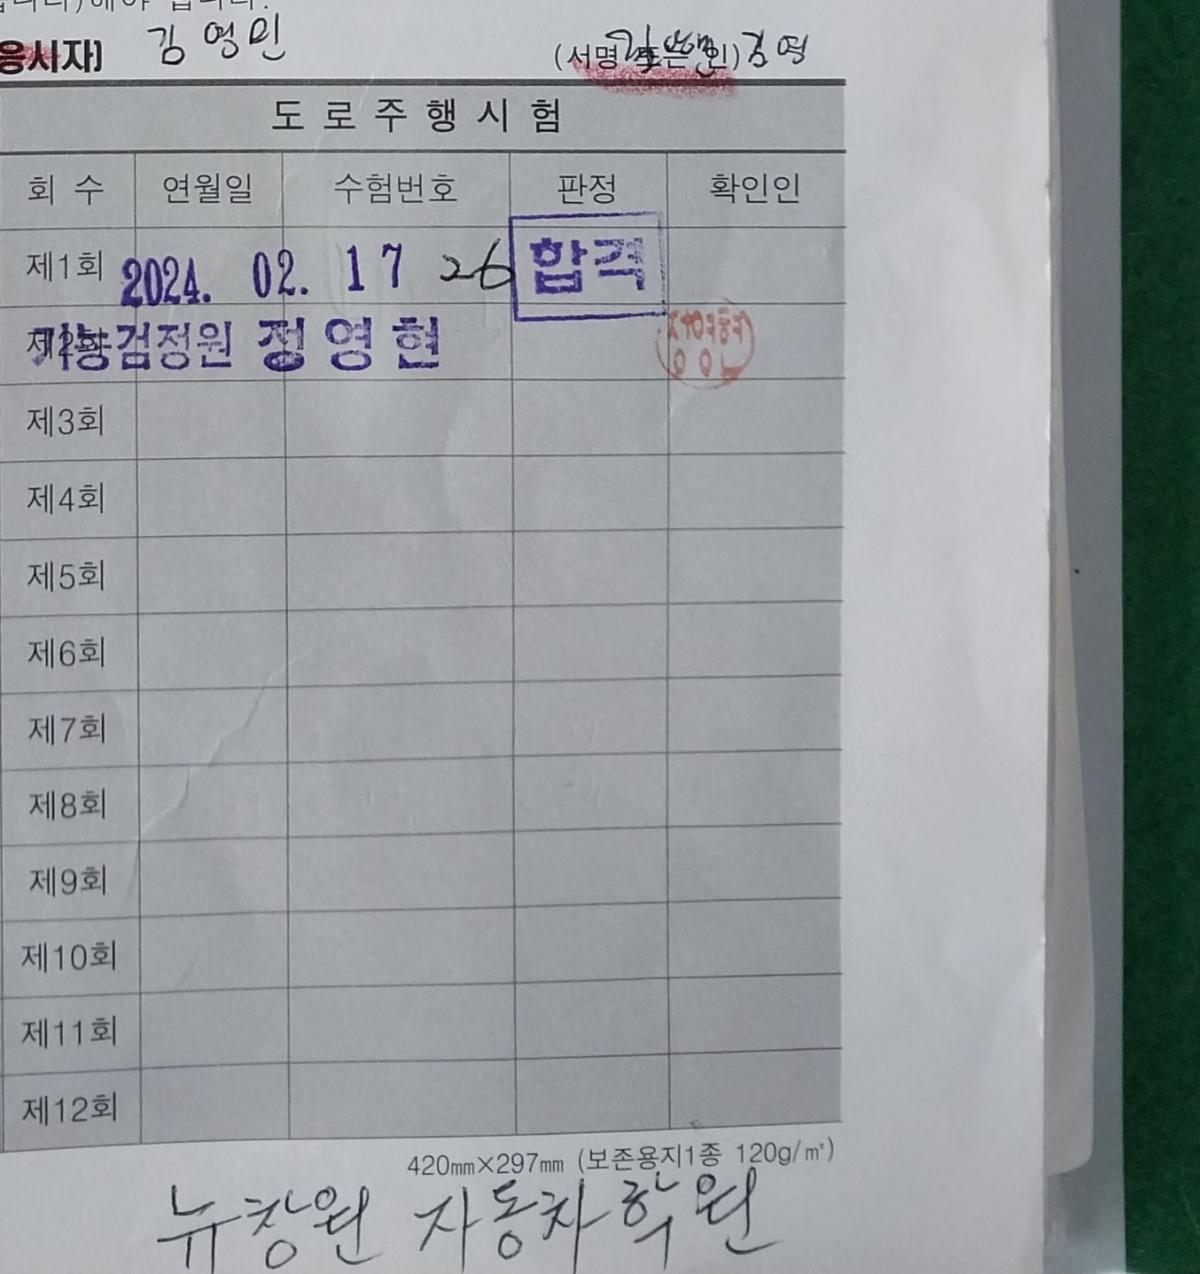 응시자] 김영민 (서명 또는 인) 김영
도로주행시험
회 수 연월일 수험번호 판정 확인인
제1회 2024. 02. 17 26 합격
제2회 기능검정원 정영현
제3회
제4회
제5회
제6회
제7회
제8회
제9회
제10회
제11회
제12회
420㎜×297㎜ (보존용지1종 120g/㎡)
뉴창원 자동차학원